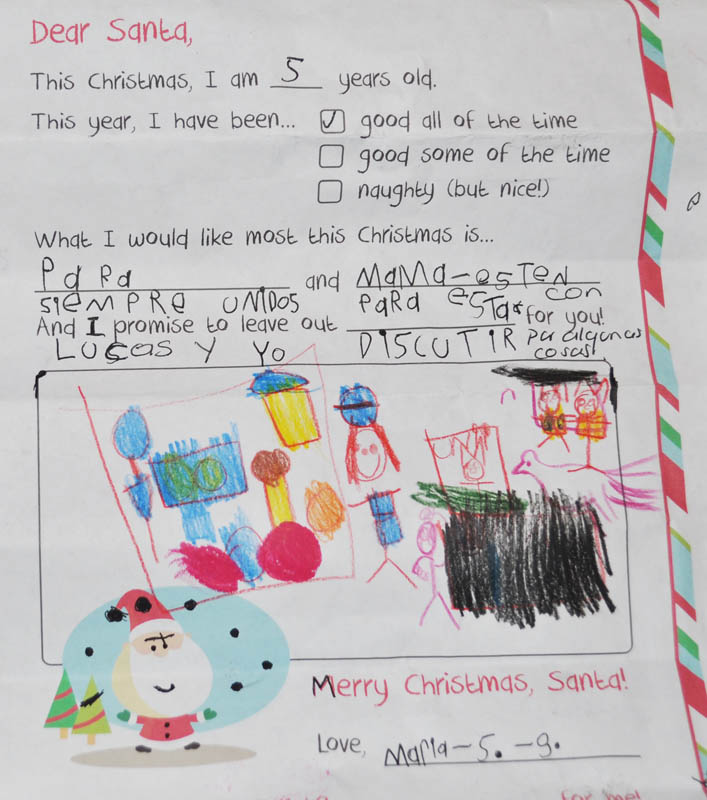 Dear Santa,
This Christmas, I am 5 years old.
This year, I have been... good all of the time
good some of the time
naughty (but nice!)
What I would like most this Christmas is...
PaRa and MaMa-esTeN
sieMPRe UNiDOS PaRa esTar con
And I promise to leave out for you!
LUcas Y Yo DiSCUTiR Par algunas
cosas!
Merry Christmas, Santa!
Love, Maria-5.-9.
for me!